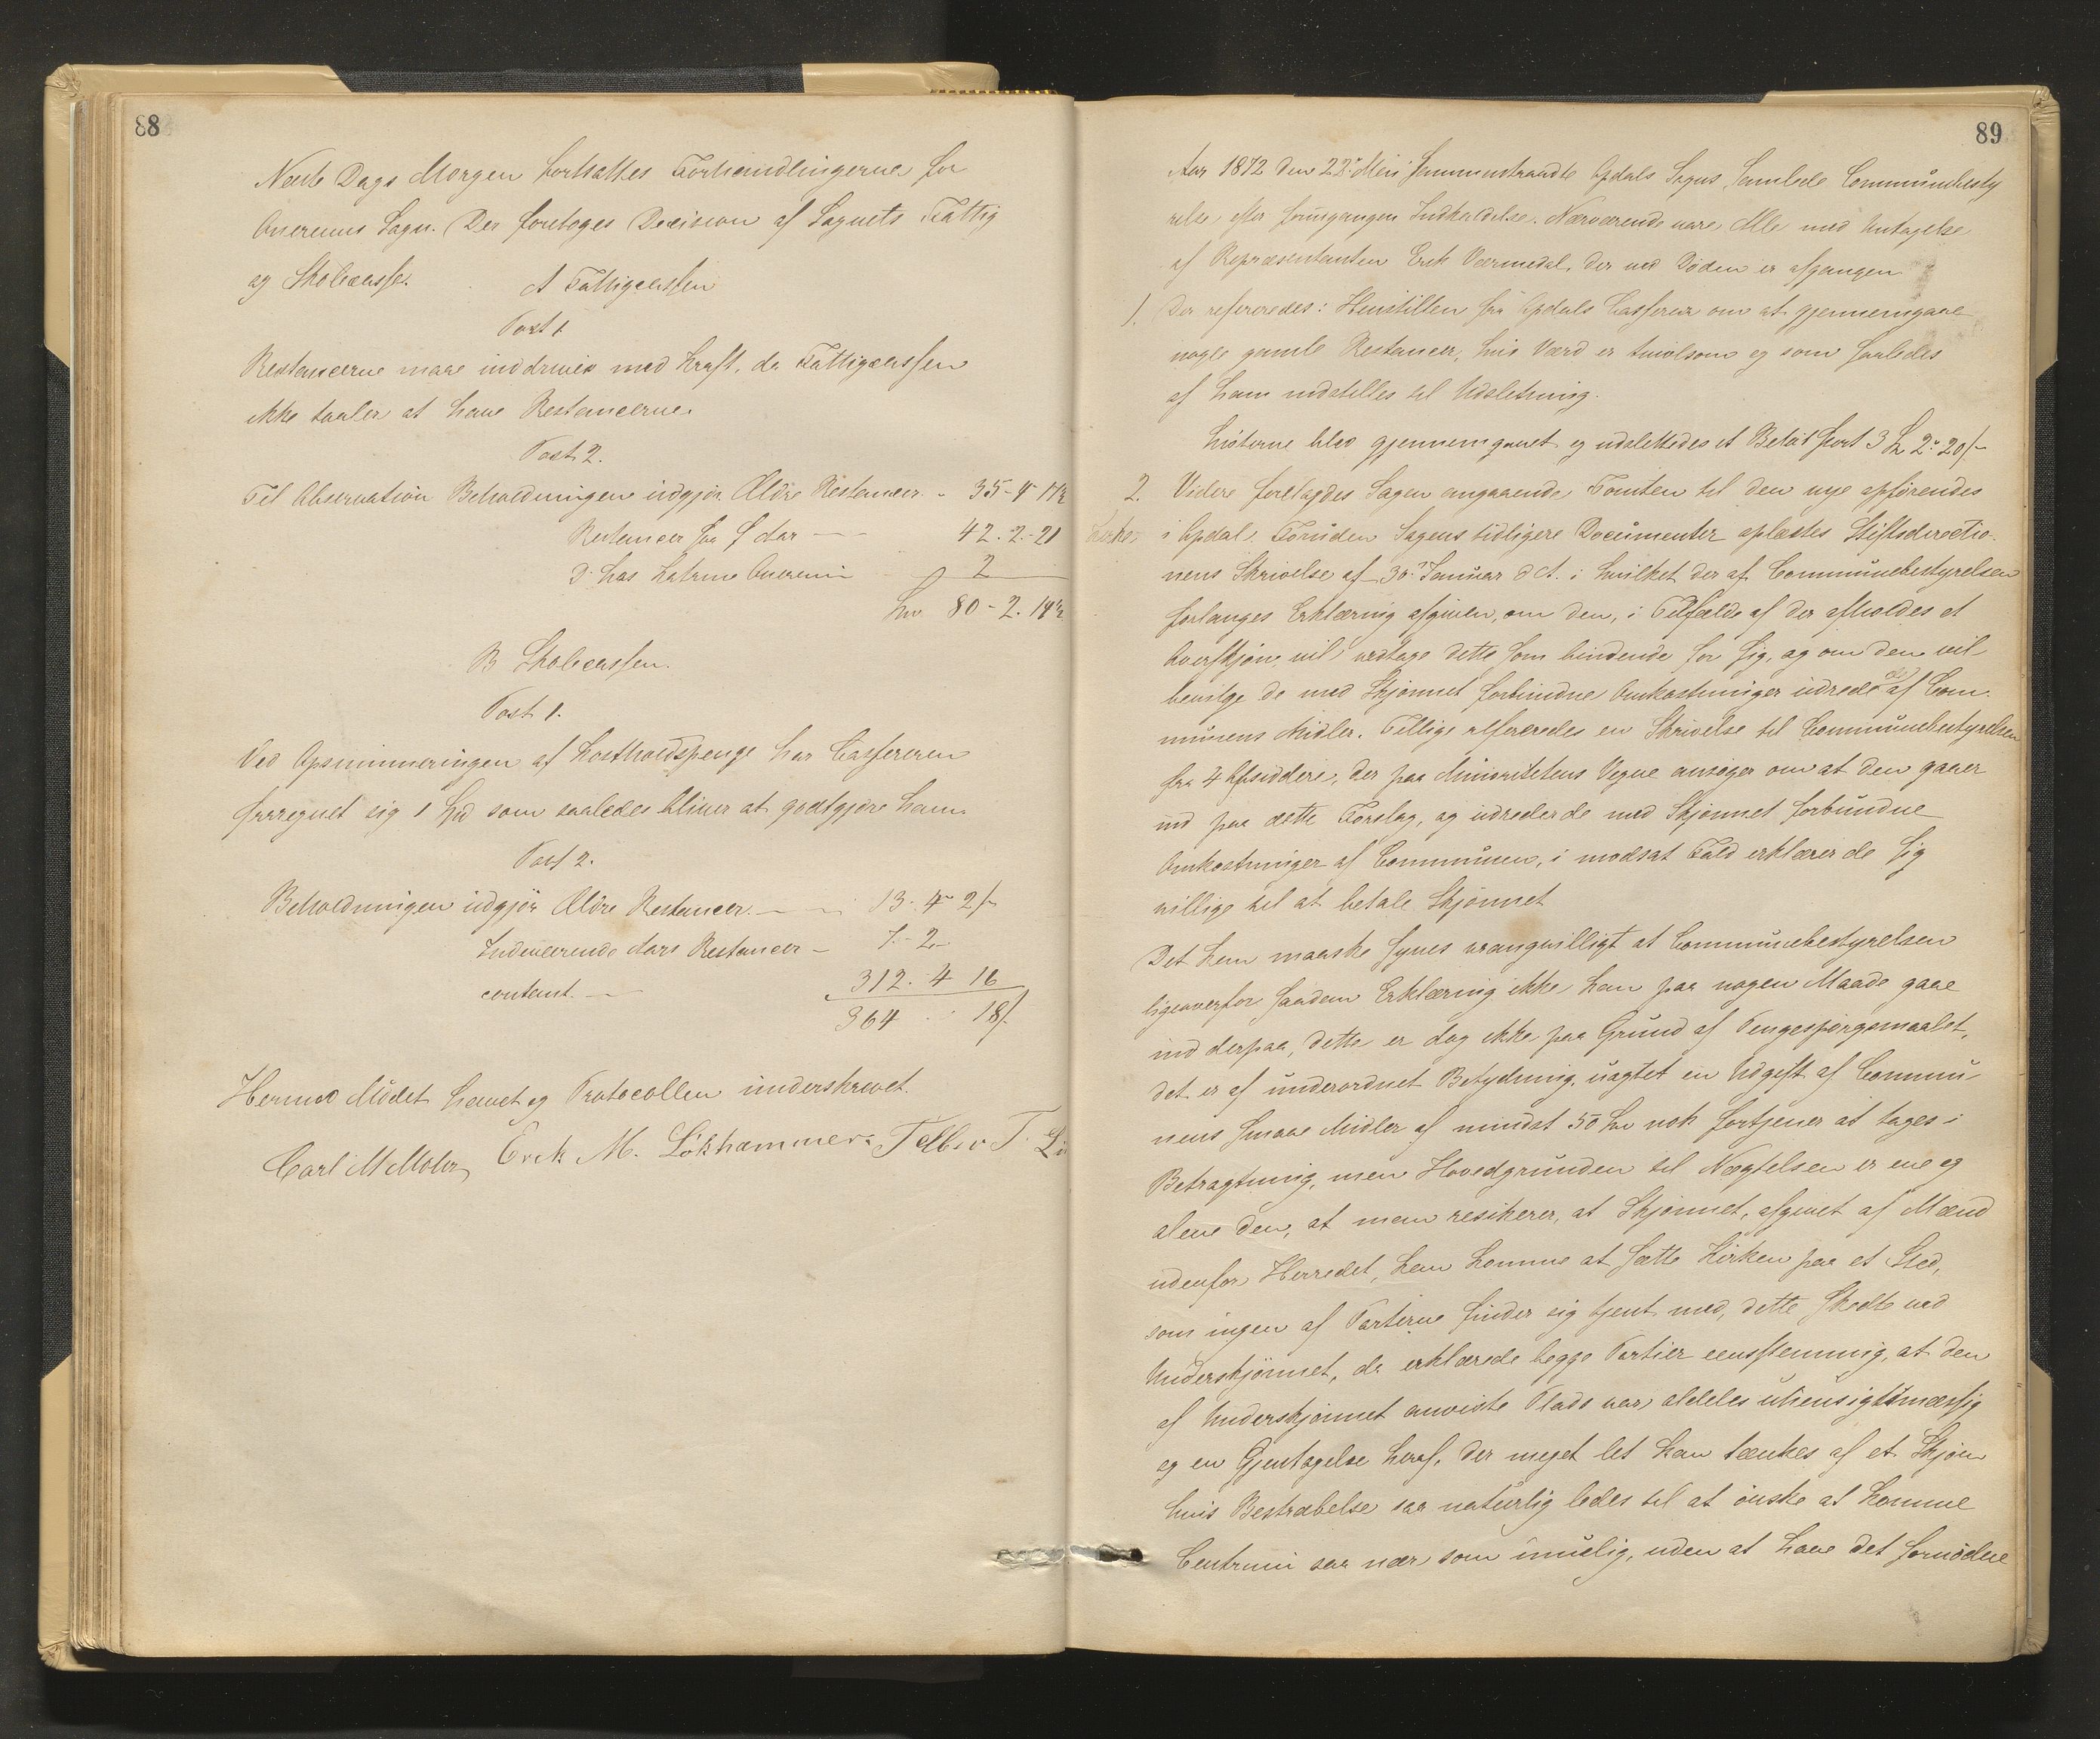 88
Næste Dags Morgen fortsattes Forhandlingerne for
Qverruus Sogn. Der foretoges Decision af Sognets Fattig
og Skolecasse.
A Fattigcassen
Post 1
Restancerne maae inddrives med Kraft, da Fattigcassen
ikke taaler at have Restancerne.
Post 2.
Til Observation Beholdningen udgjør Ældre Restancer - 35-4-
Restancer for f Aar - 42.2.-21
Do hos 2
80-2.
B Skolecassen.
Post 1.
Ved Opsummeringen af Kostholdspenge har Cassereren
forregnet sig 1 som saaledes bliver at godtgjøre ham
Post 2.
Beholdningen udgjør Ældre Restancer. - 13-4-2/-
Indeværende Aars Restancer - 7-2-
contant. - 312.4 16
364 - 18/-
Hermed Mødet hævet og Protocollen underskrevet.
Carl M Moler Erik M. Lökhammer.
89
Aar 1872 den 22de Mai Sammentraadte Opdals Sogns Samlede Communebesty
relse, efter foruudgangen Indkaldelse. Nærværende vare Alle med Untagelse
af Repræsentanten Erik Værmedal, der ved Døden er afgangen
1. Der refereredes: Henstillen fra Opdals Casserer om at gjennemgaae
nogle gamle Restancer, hvis Værd er tvivlsom og som saaledes
af ham indstilles til Udslettning.
Listerne blev gjennemgaaet og udslettedes et Beløb stort 3 2" 20/-
2. Videre forelagdes Sagen angaaende Tomten til den nye opførendes
Kirke i Opdal. Foruden Sagens tidligere Documenter oplæstes Stiftsdirectio-
nens Skrivelse af 30te Januar d A. i hvilket der af Communebestyrelsen
forlanges Erklæring afgiven, om den, i Tilfælde af der afholdes et
Overskjøn, vil vedtage dette som bindende for sig, og om den vil
bevilge de med Skjønnet forbundne Omkostninger udrede af Com-
munens Midler. Tillige refereredes en Skrivelse til Communebestyrelsen
fra 4 Opsiddere, der paa Minoritetens Vegne ansøger om at den gaaer
ind paa dette Forslag, og udreder de med Skjønnet forbundne
Omkostninger af Communen, i modsat Fald erklærer de sig
villige til at betale Skjønnet
Det kan maaske synes vrangvilligt at Communebestyrelsen
ligeoverfor saadan Erklæring ikke kan paa nogen Maade gaae
ind derpaa, dette er dog ikke paa Grund af Pengespørgsmaalet,
det er af underordnet Betydning, uagtet en Udgift af Commu-
nens smaae Midler af mindst 50 nok fortjener at tages i
Betragtning, men Hovedgrunden til Nægtelsen er ene og
alene den, at man resikerer, at Skjønnet, afgivet af Mænd
udenfor Herredet, kan komme at sætte Kirken paa et Sted,
som ingen af Partierne finder sig tjent med, dette skedte ved
Underskjønnet, da erklærede begge Partier eensstemmig, at den
af Underskjønnet anviste Plads var aldeles uhensigtsmæssig
og en Gjentagelse heraf, der meget let kan tænkes af et Skjøn
hvis Bestræbelse saa naturlig ledes til at ønske at komme
Centrum saa nær som muelig, uden at have det fornødne